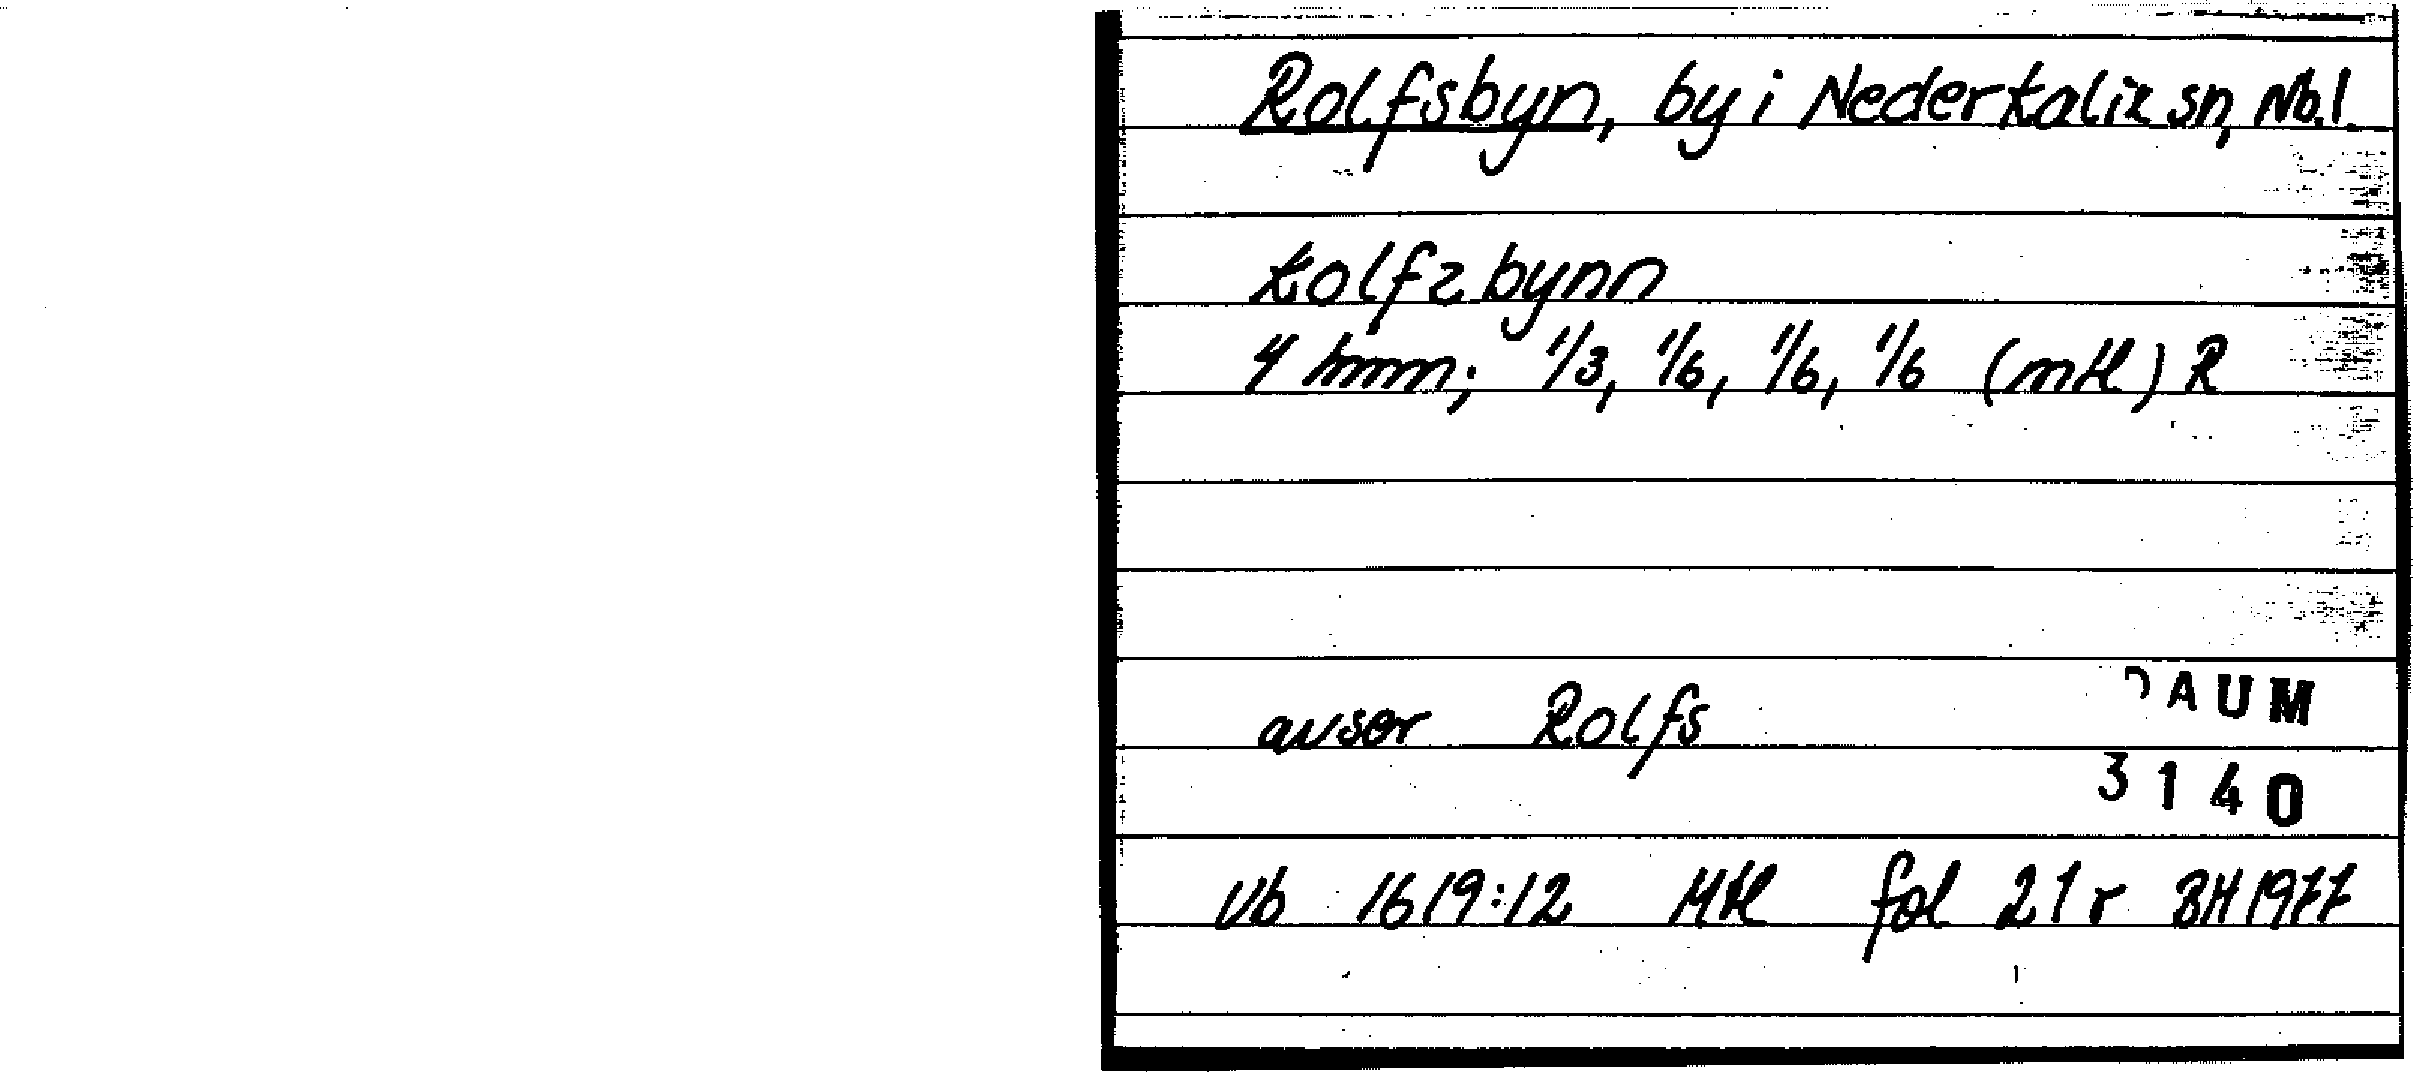 Rolfsbyn, by i Nederkalix sn, Nb.l.
kolfzbynn
4 hmm; 1/3, 1/6, 1/6, 1/6 (mtl) R
avser Rolfs
DAUM
3140
Vb 1619:12 Mtl fol 21r BH 1977